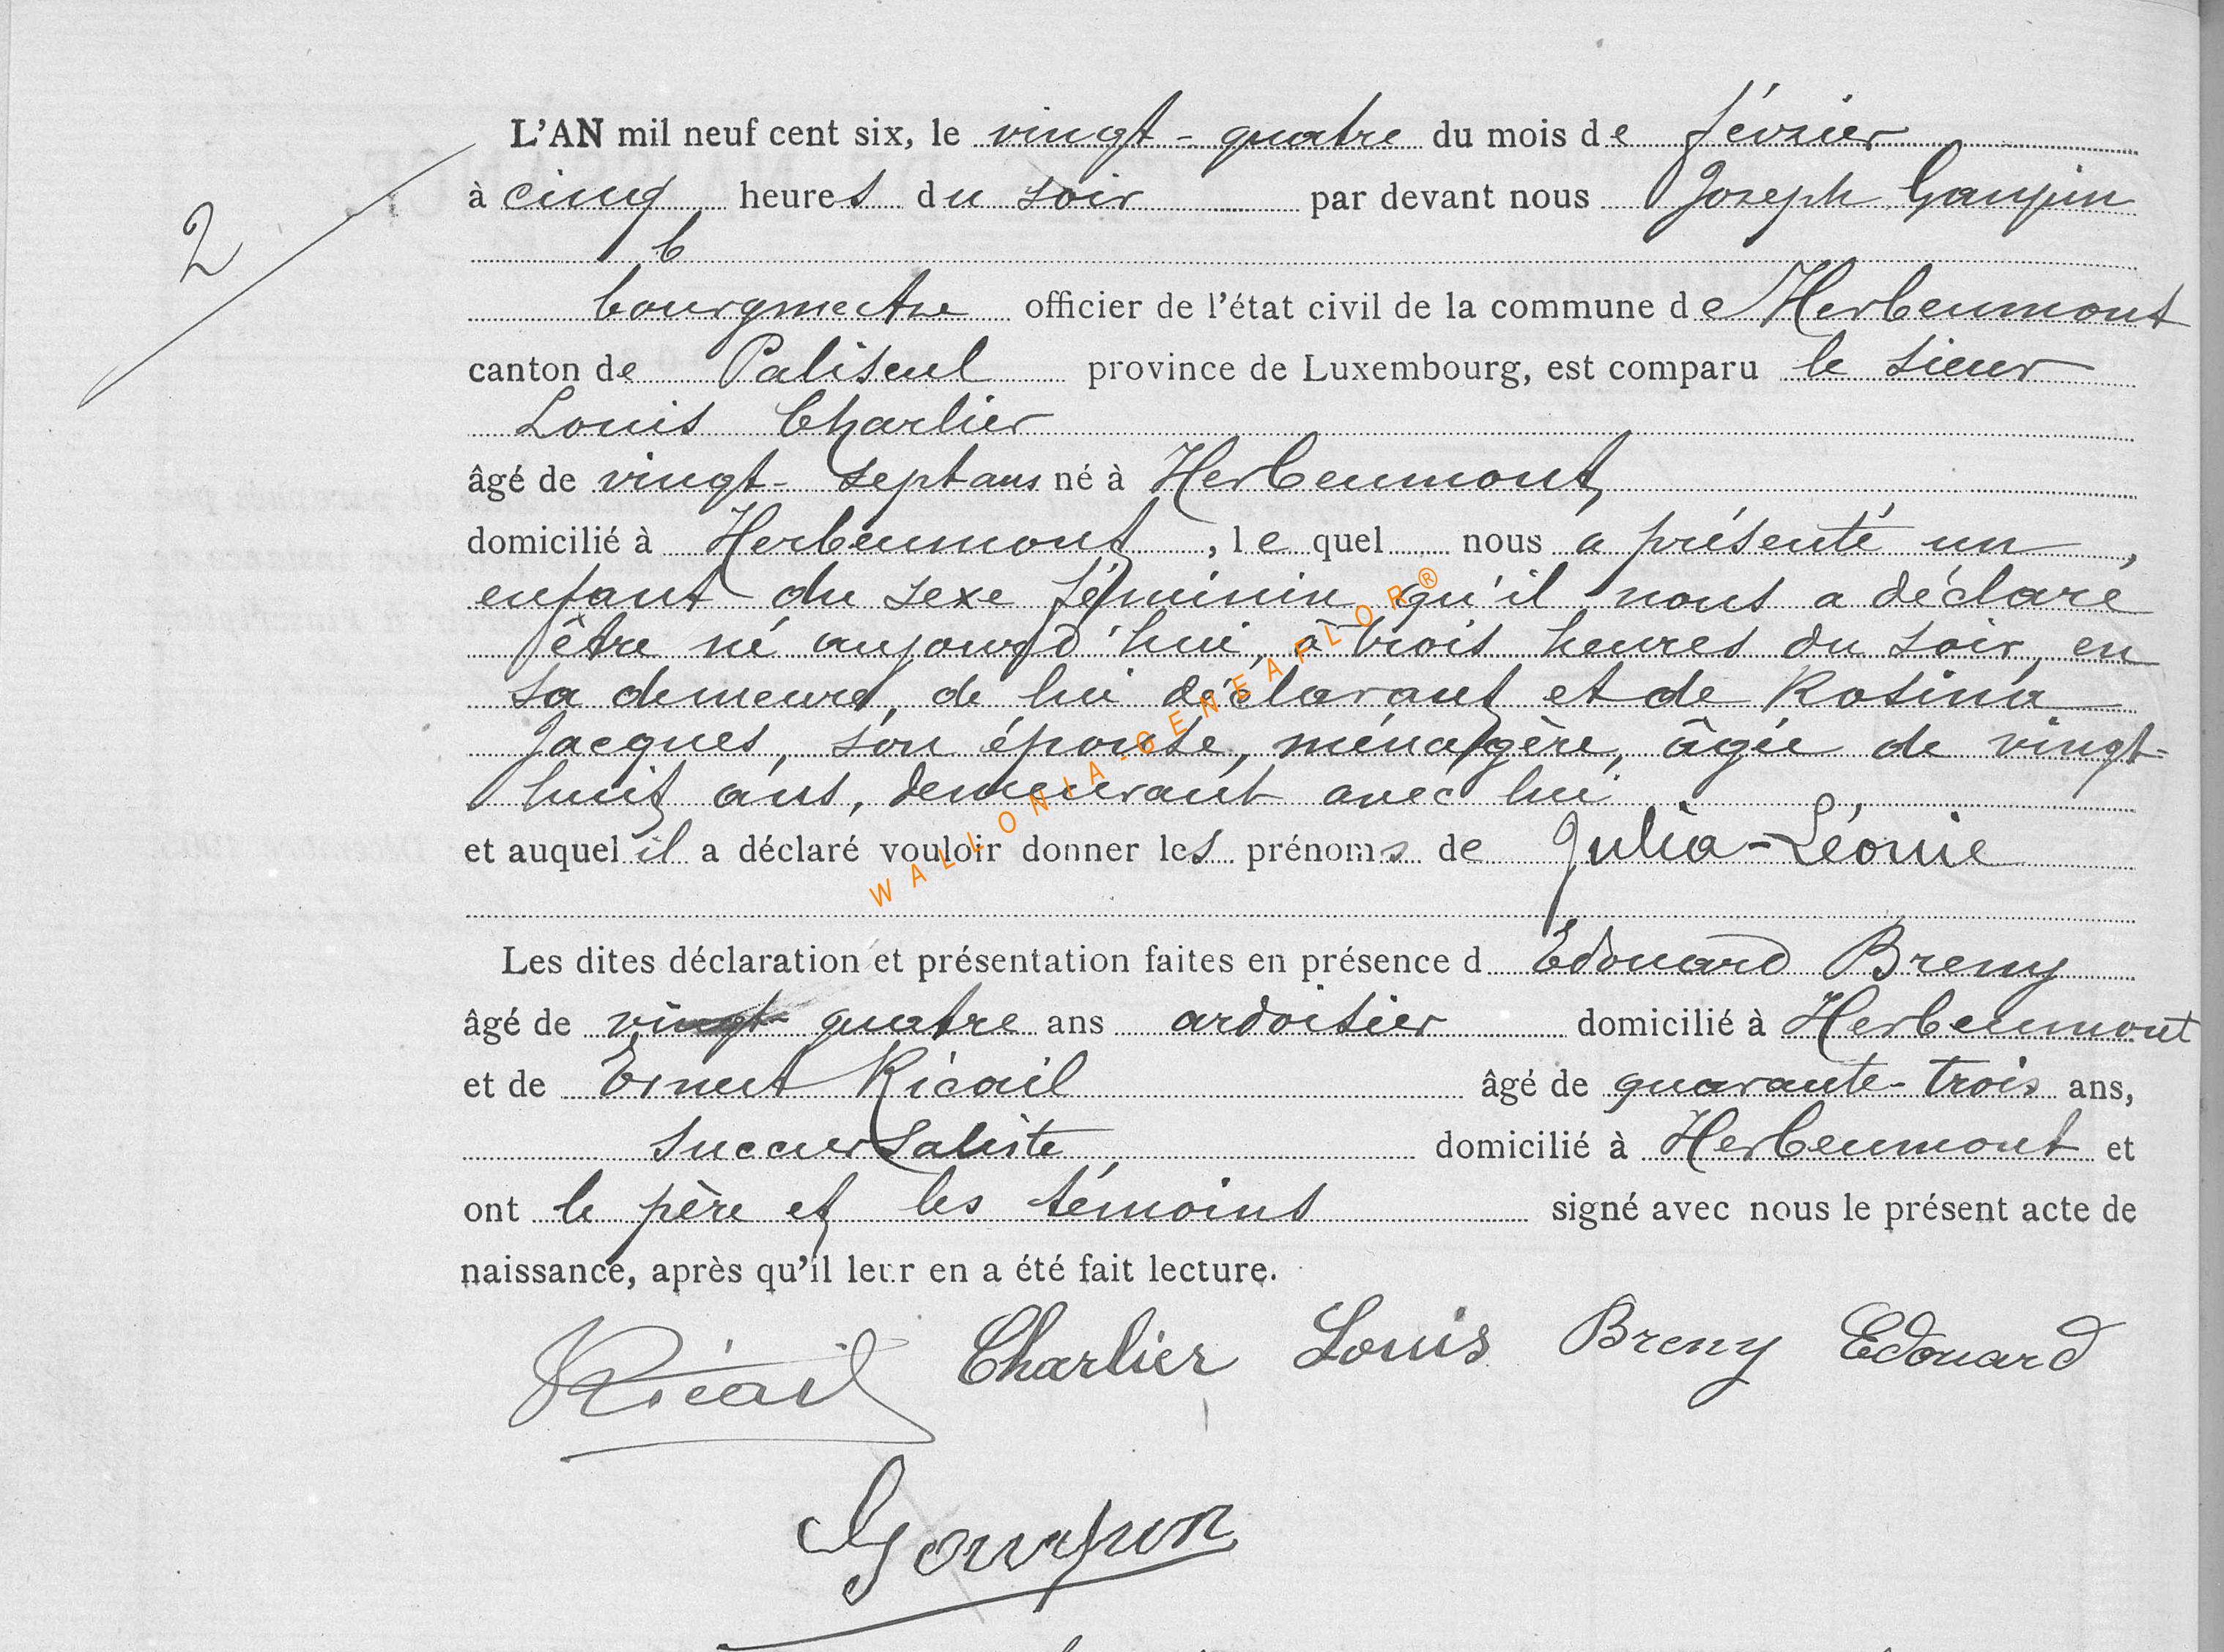 L'AN mil neuf cent six, le vingt-quatre du mois de février
2
à cinq heures du soir par devant nous Joseph Gaupin
b
bourgmestre officier de l'état civil de la commune de Herbeumont
canton de Paliseul province de Luxembourg, est comparu le sieur
Louis Charlier
âgé de vingt-sept ans né à Herbeumont
domicilié à Herbeumont, lequel nous a présenté un,
enfant du sexe féminin qu'il nous a déclaré
être né aujourd'hui, à trois heures du soir, en
sa demeure, de lui déclarant et de Rosina
Jacques, son épouse, ménagère, âgée de vingt-
huit ans, demeurant avec lui
et auquel il a déclaré vouloir donner les prénoms de Julia-Léonie
Les dites déclaration et présentation faites en présence d Edouard Breny
âgé de vingt quatre ans ardoisier domicilié à Herbeumont
et de Ernest Ricail âgé de quarante-trois ans,
succursaliste domicilié à Herbeumont et
ont le père et les témoins signé avec nous le présent acte de
naissance, après qu'il leur en a été fait lecture.
Ricail Charlier Louis Breny Edouard
Gaupin
WALLONIA-GENEAFLOR®